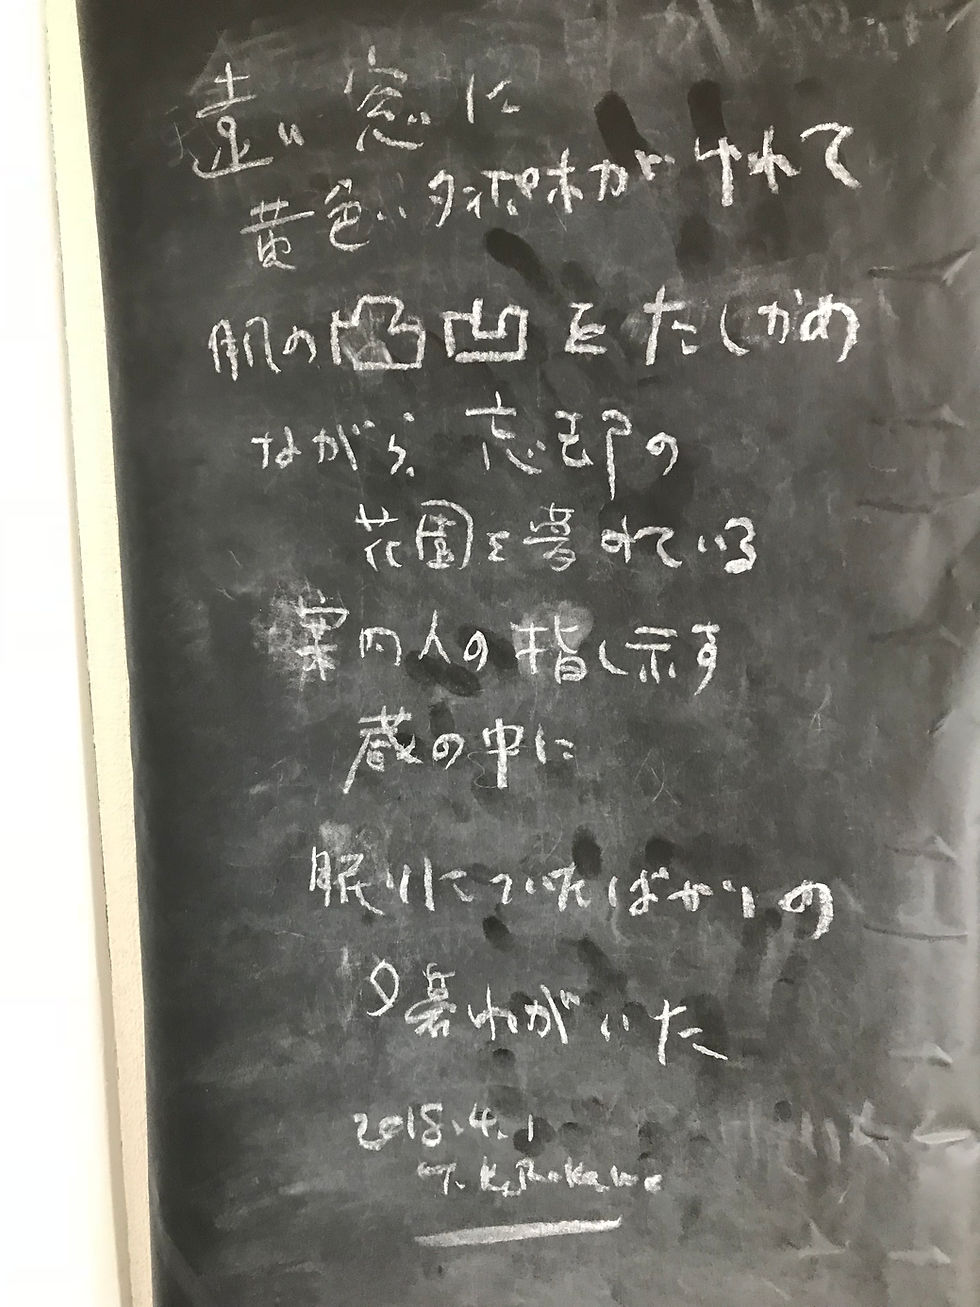 遠い窓に
黄色い がゆれて
肌の凸凹をたしかめ
ながら 忘却の
花園を夢みている
案内人の指し示す
蔵の中に
眠りについたばかりの
夕暮れがいた
2018.4.1